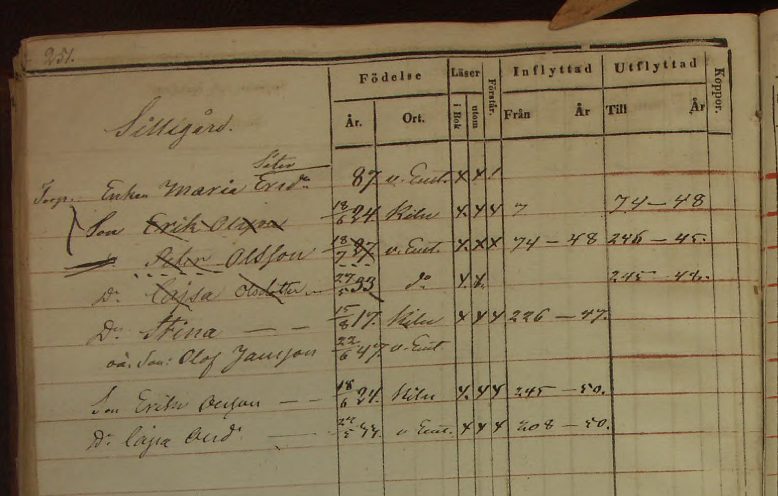 251.
Födelse Läser Förstår. Inflyttad Utflyttad Koppor.
År. Ort. i Bok utom Från År Till År
Sillegård.
Torp. Enkan Maria Ersdr 87 v. Emt. x x
Son Erik Olsson 18/6 24 Kiln x. x x 7 74 — 48
Peter Olsson 18/7 v. Emt. x. x x 74 — 48 246 — 45.
Dr Cajsa Olsdotter 27/5 33 do x x. 245 — 46.
Dr Stina — — 15/8 17. Kiln x x x 226 — 47.
oä. Son: Olof Jansson 22/6 47 v. Emt
Son Erik Olsson — — 18/6 24. Kiln x. x x 245 — 50.
Dr Cajsa Olsdr — 27/5 v Emt. x x x 208 — 50.